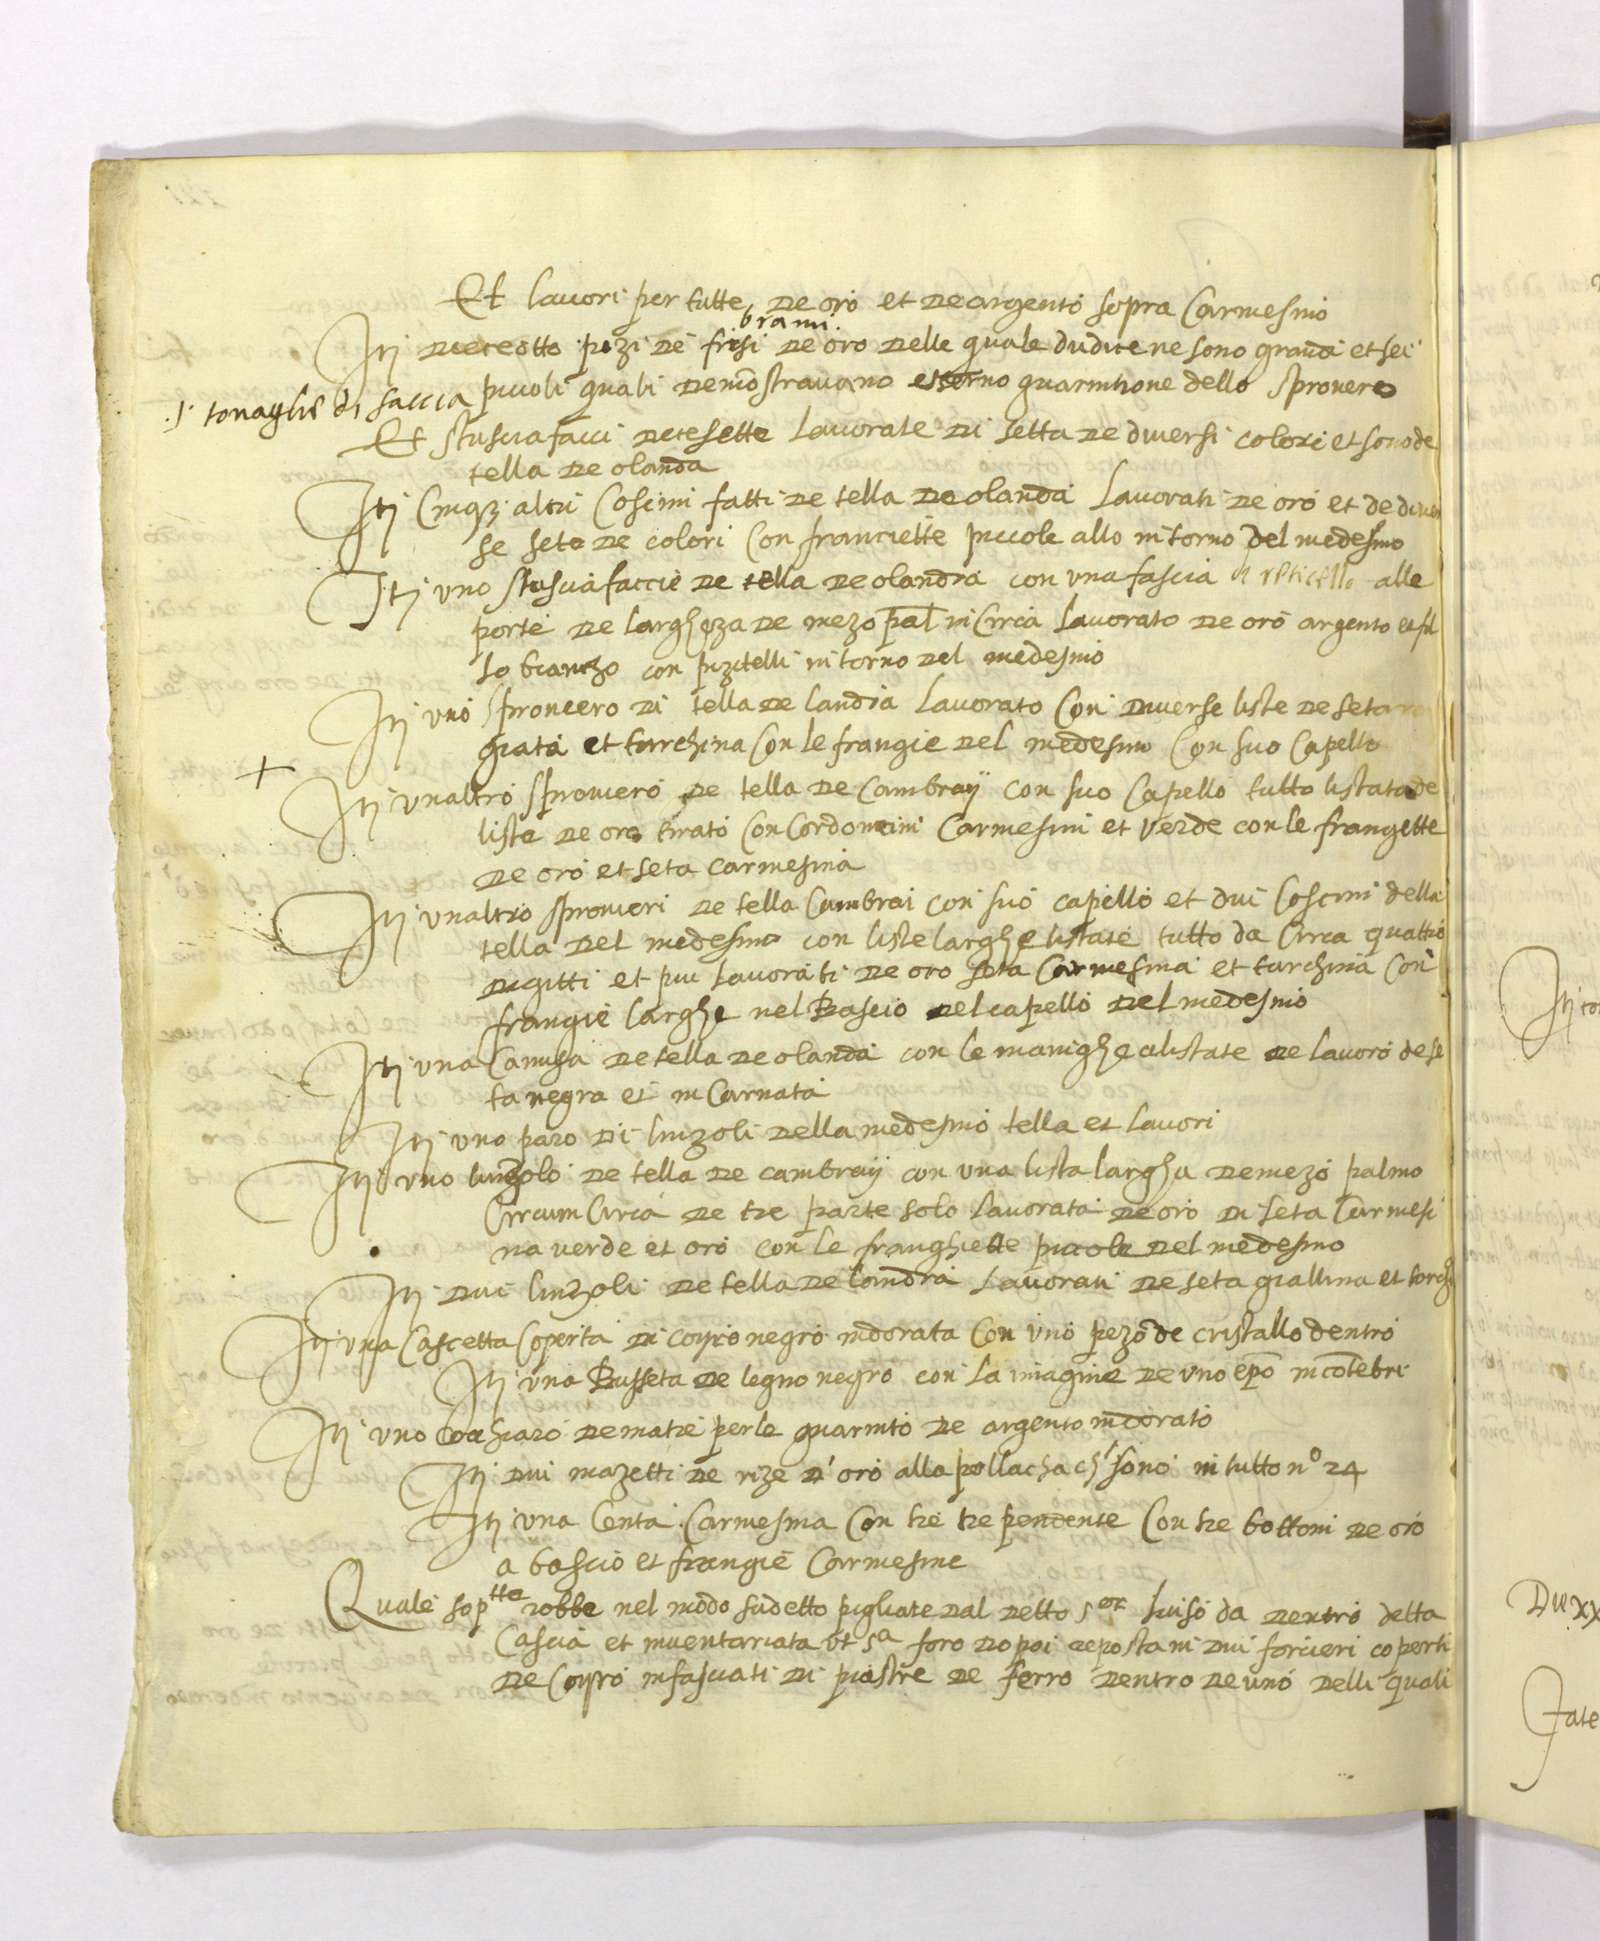 Et lauori per tutte de oro et de argento sopra Carmesino
brami.
Itj deceotto pezi de frisi de oro delle quale dudice ne sono grandi et sei
piccoli quali demostrauano esserno guarnitione dello sprouero
.s. touaglie di faccia
Et stusciafacci decesette lauorate di setta de diuersi colori et sono de
tella de olanda
Itj Cinq3 altri Coscini fatti de tella de olanda lauorati de oro et de diuer
se sete de colori con franciette piccole allo intorno del medesmo
Itj uno stusciafaccie de tella de olandia con una fascia di reticella alle
porte de largheza de mezo pal in Circa lauorato de oro argento et fil
lo biancho con pizitelli intorno del medesmo
Itj uno sprouero di tella de landia lauorato con diuerse liste de seta
giata et torchina con le frangie del medesmo con suo Capello
+
Itj unaltro sprouero de tella de Cambraÿ con suo Capello tutto listato de
liste de oro tirato con Cordoncini Carmesini et verde con le frangette
de oro et seta carmesina
Itj unaltro sproueri de tella Cambrai con suo capello et dui Coscini della
tella del medesmo con liste larghe listate tutto da Circa quattro
digitti et piu lauorati de oro seta Carmesina et turchina con
frangie larghe nel Bascio del capello del medesmo
Itj una Camisa de tella de olanda con le manighe alistate de lauoro de se
ta negra et in Carnata
Itj uno paro di linzoli della medesmo tella et lauori
Itj uno linzolo de tella de cambraÿ con una lista largha de mezo palmo
Circum Circa de tre parte solo lauorata de oro di seta Carmesi
na verde et oro con le franghiette piccole del medesmo
Itj dui linzoli de tella de londra lauorati de seta giallina et torch
Itj una Cascetta Coperta di coyro negro indorata con uno pezo de cristallo dentro
Itj una Busseta de legno negro con la imagine de uno epo in cotebri
Itj uno Cochiaro de matre perle guarnito de argento indorato
Itj dui mazetti de rize d'oro alla pollacha ch' sono in tutto n° 24
Itj una Centa Carmesina Con tre tre pendente Con tre bottoni de oro
a bascio et frangie Carmesine
Quale soptte robbe nel modo sudetto pigliate dal detto sor luiso da dentro detta
Cascia et inuentariata ut sa foro dopoi reposta in dui forcieri coperti
de Coyro infasciati di piastre de ferro dentro de uno delli quali